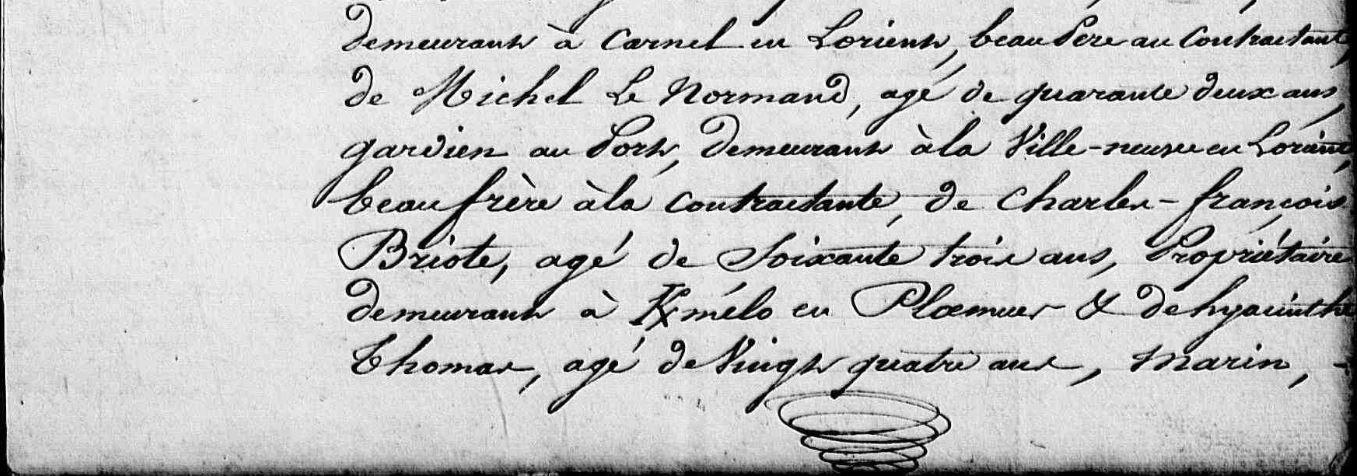 demeurant à Carnel en Lorient, beau Père au Contractant,
de Michel Le Normand, agé de quarante deux ans,
gardien au Port, demeurant à la Ville-neuve en Lorient,
beau frère à la Contractante, de Charles-françois
Briote, agé de Soixante trois ans, Propriétaire
demeurant à Kmélo en Ploemeur & de hyacinthe
Thomas, agé de Vingt quatre ans, Marin, -